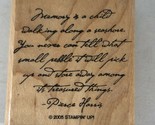 Memory is a child
walking along a seashore.
You never can tell what
small pebble it will pick
up and store away among
its treasured things.
- Pierce Harris
© 2005 STAMPIN' UP!